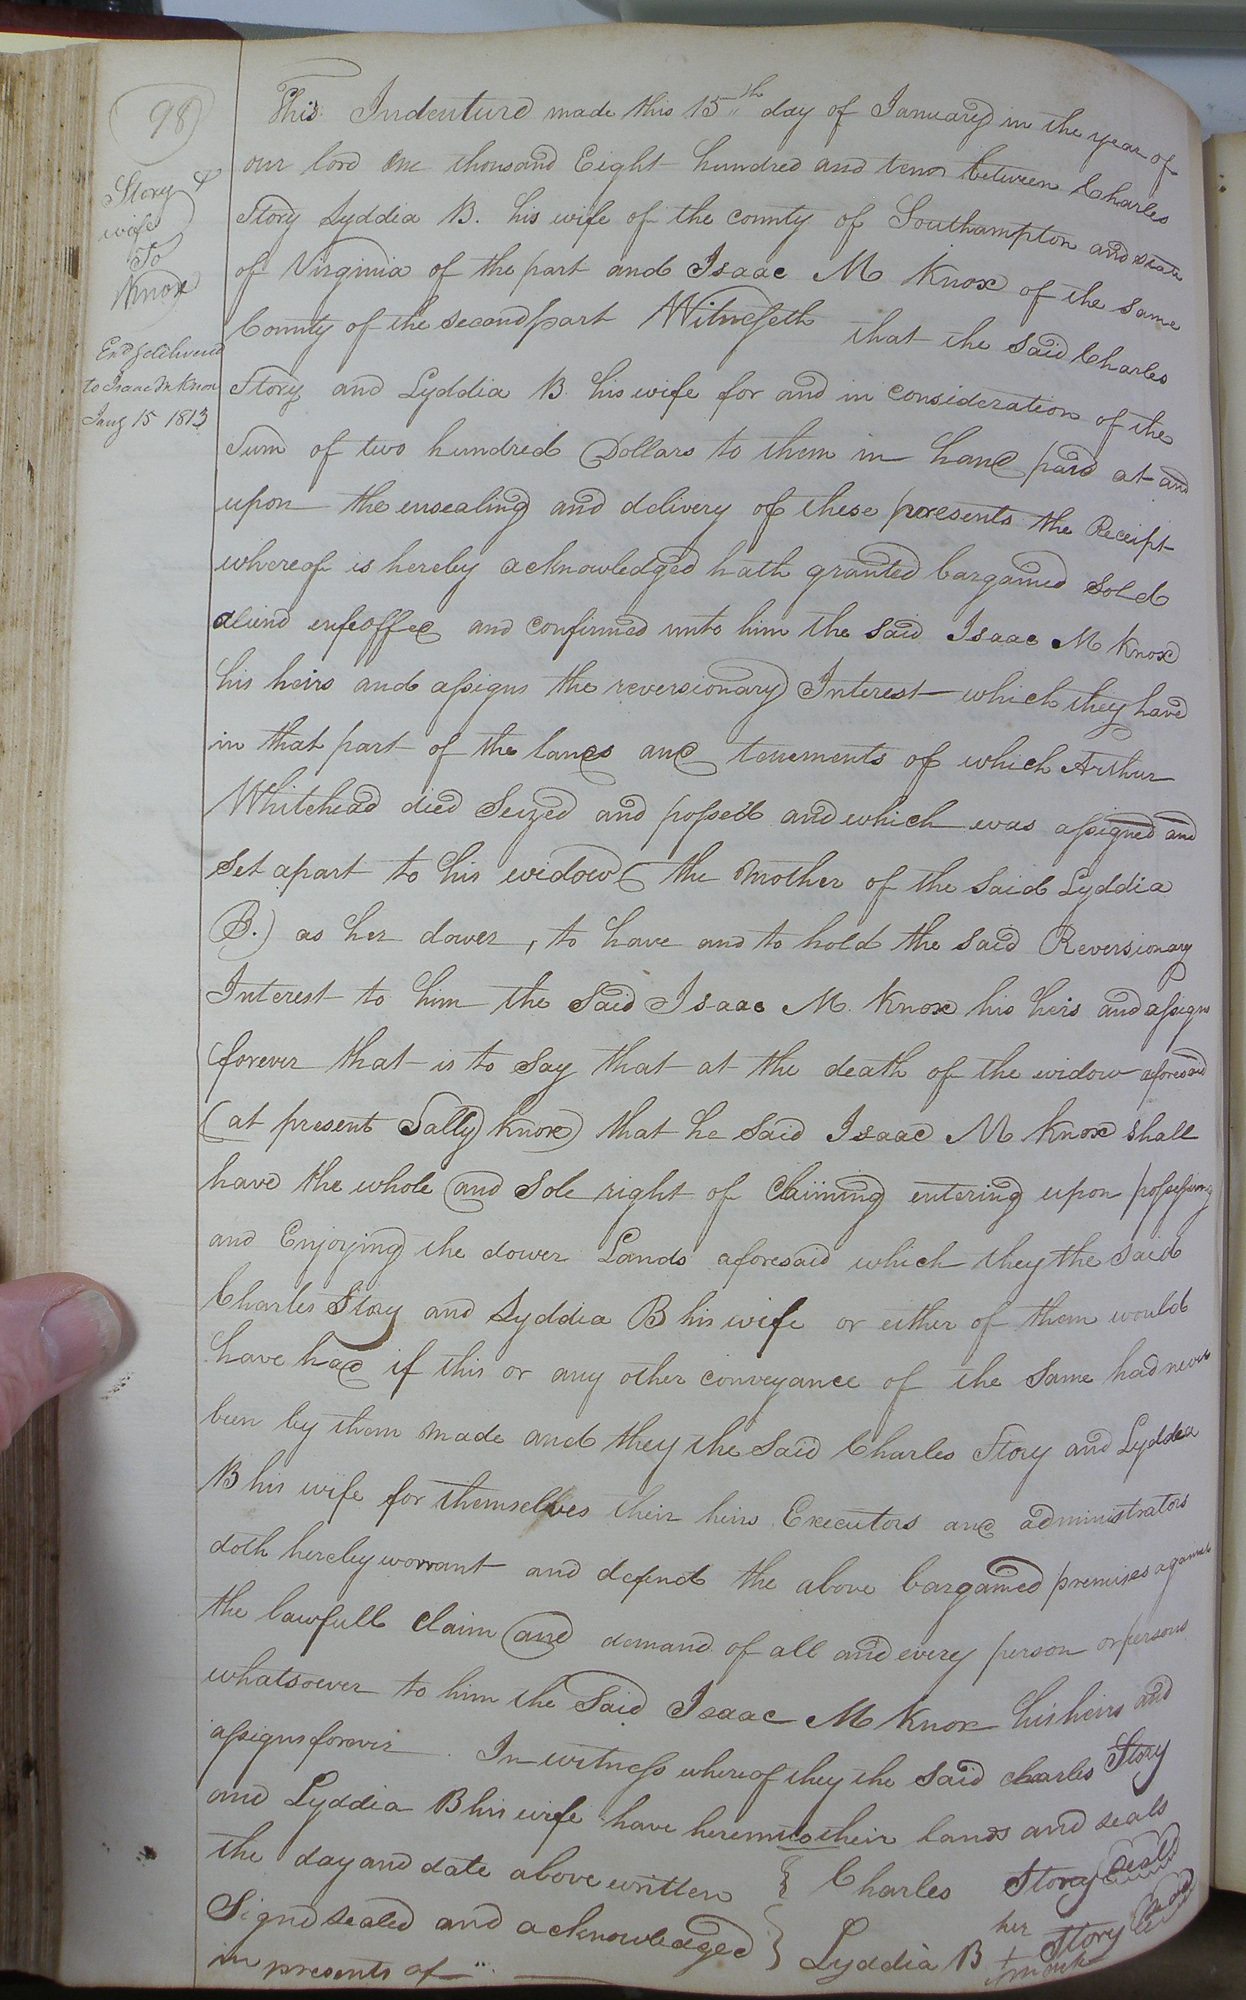 98
Story &
wife
To
Knox
Exd & delivered
to Isaac M Knox
Jany 15 1813
This Indenture made this 15th day of January in the year of
our lord one thousand Eight hundred and ten between Charles
Story Lyddia B. his wife of the county of Southampton and state
of Virginia of the part and Isaac M Knox of the same
County of the second part Witnesseth that the said Charles
Story and Lyddia B his wife for and in consideration of the
Sum of two hundred Dollars to them in hand paid at and
upon the ensealing and delivery of these presents the Receipt
whereof is hereby acknowledged hath granted bargained sold
aliend enfeoffed and confirmed unto him the said Isaac M Knox
his heirs and assigns the reversionary Interest which they have
in that part of the lands and tenements of which Arthur
Whitehead died Seized and possest and which was assigned and
Set apart to his widow (the mother of the said Lyddia
B.) as her dower, to have and to hold the said Reversionary
Interest to him the Said Isaac M. Knox his heirs and assigns
forever that is to Say that at the death of the widow aforesaid
(at present Sally Knox) that he said Isaac M Knox shall
have the whole and sole right of claiming entering upon possessing
and Enjoying the dower Lands aforesaid which they the said
Charles Story and Lyddia B his wife or either of them would
have had if this or any other conveyance of the same had never
been by them made and they the Said Charles Story and Lyddia
B his wife for themselves their heirs Executors and administrators
doth hereby warrant and defend the above bargained premises against
the lawfull claim and demand of all and every person or persons
whatsoever to him the Said Isaac M Knox his heirs and
assigns forever. In witness whereof they the said Charles Story
and Lyddia B his wife have hereunto their hands and seals
the day and date above written } Charles Story Seal
Signd sealed and acknowledged } Lyddia B her + mark Story Seal
in presents of